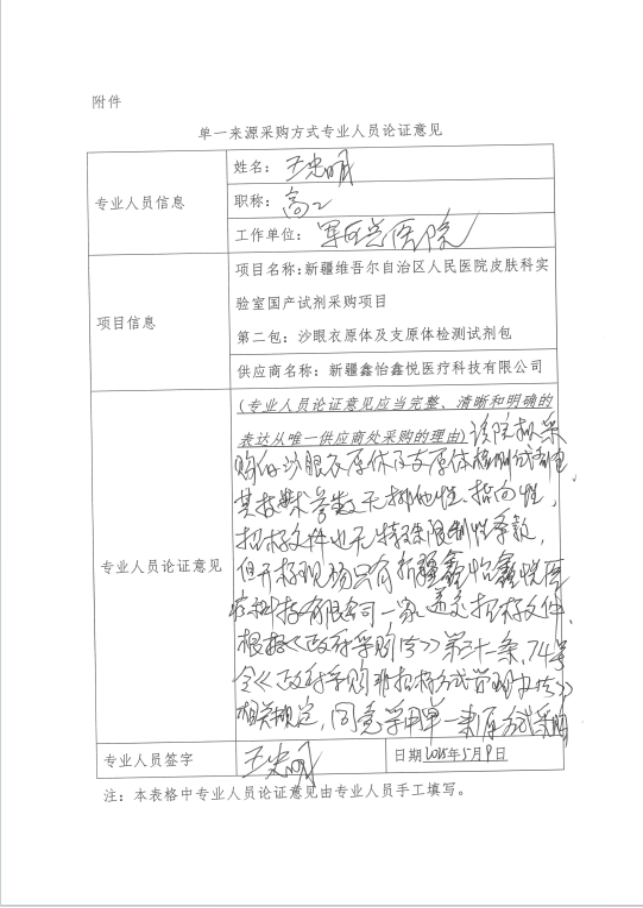 附件
单一来源采购方式专业人员论证意见
专业人员信息
姓名：王忠明
职称：高工
工作单位：军区总医院
项目信息
项目名称：新疆维吾尔自治区人民医院皮肤科实
验室国产试剂采购项目
第二包：沙眼衣原体及支原体检测试剂包
供应商名称：新疆鑫怡鑫悦医疗科技有限公司
专业人员论证意见
(专业人员论证意见应当完整、清晰和明确的
表达从唯一供应商处采购的理由)该院拟采
购的沙眼衣原体及支原体检测试剂包，
其技术参数无排他性、指向性，
招标文件也无特殊限制性条款，
但开标现场只有新疆鑫怡鑫悦医
疗科技有限公司一家递交招标文件，
根据《政府采购法》第三十一条，74号
令《政府采购非招标方式管理办法》
相关规定，同意采用单一来源方式采购
专业人员签字
王忠明
日期 年5月9日
注：本表格中专业人员论证意见由专业人员手工填写。